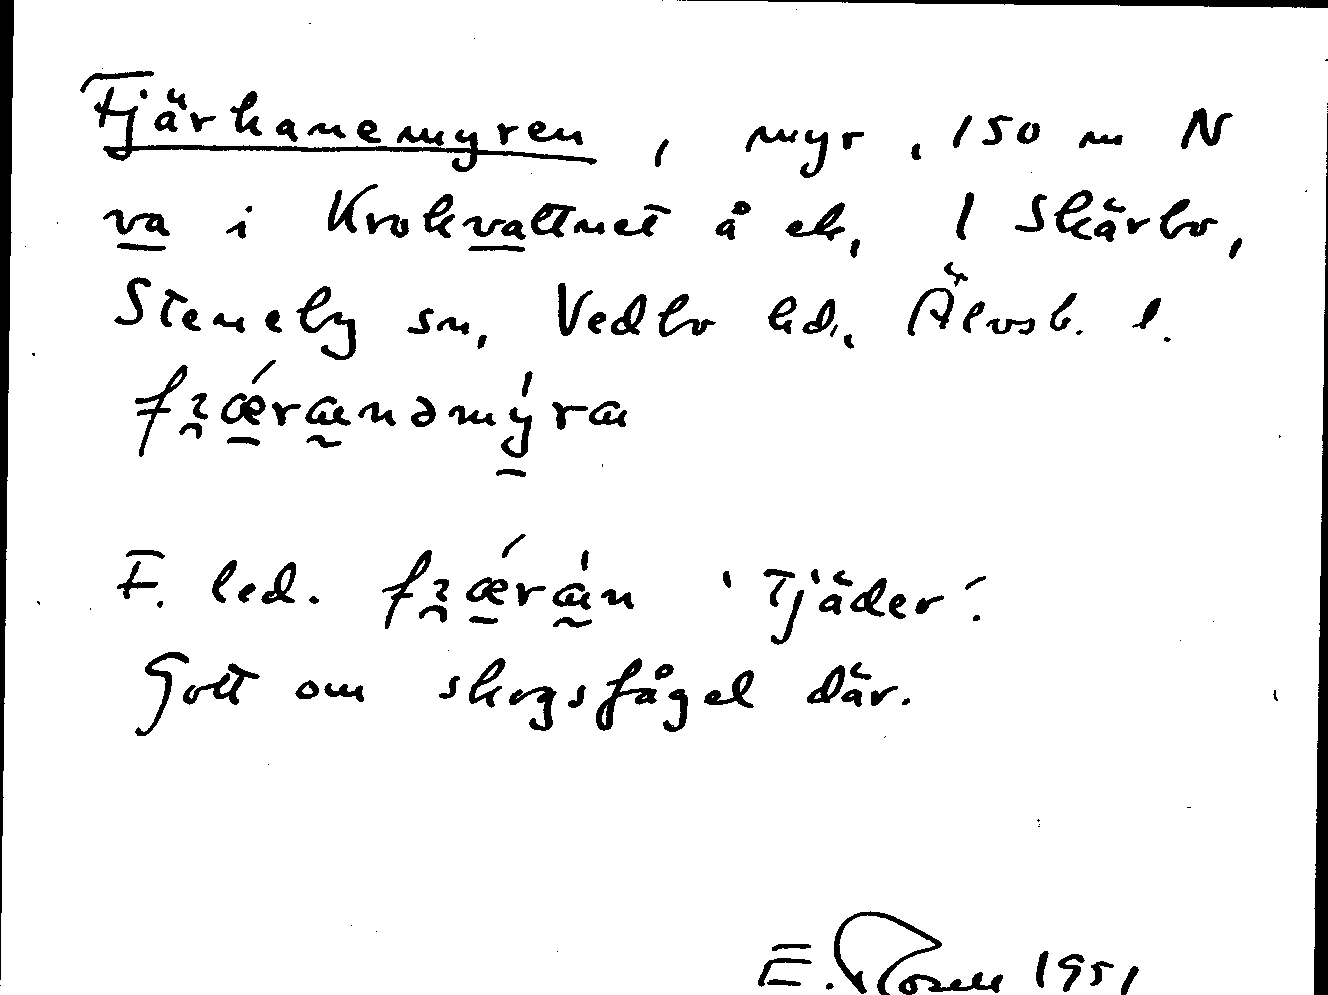 Fjärhanemyren, myr, 150 m N
va i Krokvattnet å ek, 1 Skärbo,
Steneby sn, Vedbo hd, Älvsb. l.
F. led. 'Tjäder'.
Gott om skogsfågel där.
E. Rosell 1951